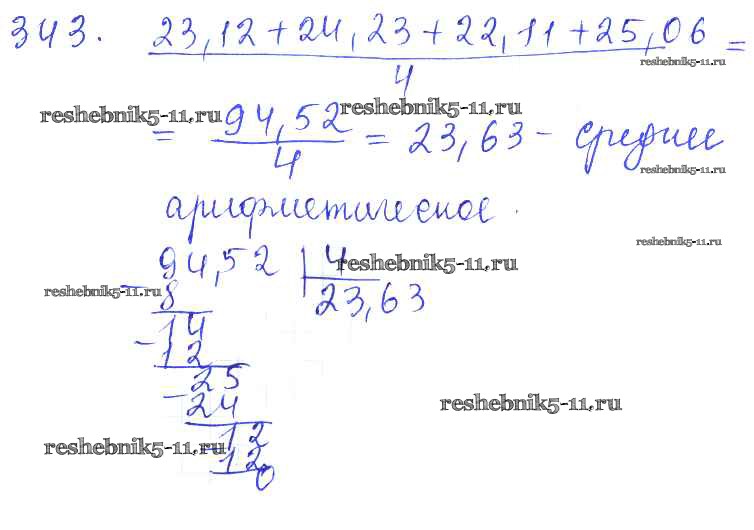 343. 23,12 + 24,23 + 22,11 + 25,06 =
4
reshebnik5-11.ru
reshebnik5-11.ru reshebnik5-11.ru
= 94,52 = 23,63 - среднее
4
reshebnik5-11.ru
арифметическое.
reshebnik5-11.ru
94,52 4
reshebnik5-11.ru
reshebnik5-11.ru
- 8 23,63
14
- 12
25
- 24
reshebnik5-11.ru
12
reshebnik5-11.ru
- 12
0